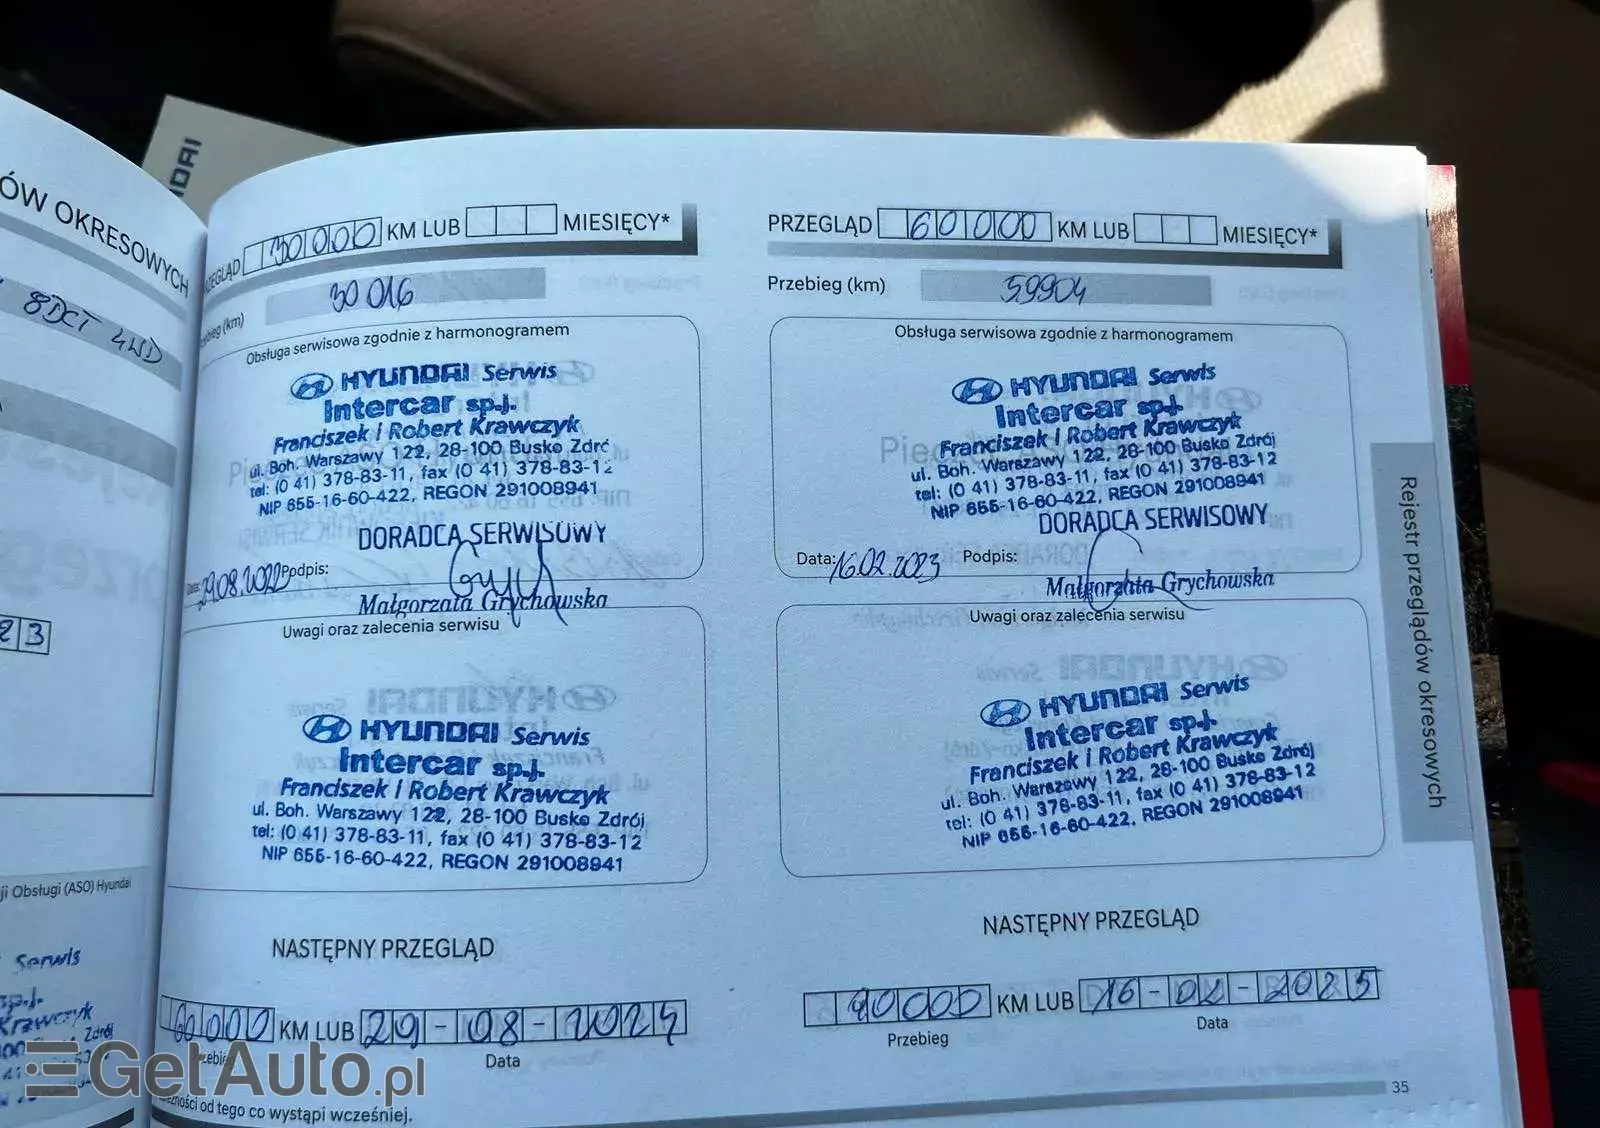 ÓW OKRESOWYCH
8DCT 4WD
23
ji Obsługi (ASO) Hyundai
Serwis
sp.j.
Krawczyk
Zdrój
30000 KM LUB MIESIĘCY*
30 016
Obsługa serwisowa zgodnie z harmonogramem
HYUNDAI Serwis
Intercar sp.j.
Franciszek i Robert Krawczyk
ul. Boh. Warszawy 122, 28-100 Busko Zdró
tel: (0 41) 378-83-11, fax (0 41) 378-83-12
NIP 655-16-60-422, REGON 291008941
DORADCA SERWISOWY
29.08.2022 Podpis:
Małgorzata Grychowska
Uwagi oraz zalecenia serwisu
HYUNDAI Serwis
Intercar sp.j.
Franciszek i Robert Krawczyk
ul. Boh. Warszawy 122, 28-100 Busko Zdrój
tel: (0 41) 378-83-11, fax (0 41) 378-83-12
NIP 655-16-60-422, REGON 291008941
NASTĘPNY PRZEGLĄD
60000 KM LUB 29-08-2024
Data
od tego co wystąpi wcześniej.
PRZEGLĄD 60000 KM LUB MIESIĘCY*
Przebieg (km) 59904
Obsługa serwisowa zgodnie z harmonogramem
HYUNDAI Serwis
Intercar sp.j.
Franciszek i Robert Krawczyk
ul. Boh. Warszawy 122, 28-100 Busko Zdrój
tel: (0 41) 378-83-11, fax (0 41) 378-83-12
NIP 655-16-60-422, REGON 291008941
DORADCA SERWISOWY
Data: 16.02.2023 Podpis:
Małgorzata Grychowska
Uwagi oraz zalecenia serwisu
HYUNDAI Serwis
Intercar sp.j.
Franciszek i Robert Krawczyk
ul. Boh. Warszawy 122, 28-100 Busko Zdrój
tel: (0 41) 378-83-11, fax (0 41) 378-83-12
NIP 655-16-60-422, REGON 291008941
NASTĘPNY PRZEGLĄD
90000 KM LUB 16-02-2025
Przebieg Data
35
Rejestr przeglądów okresowych
GetAuto.pl